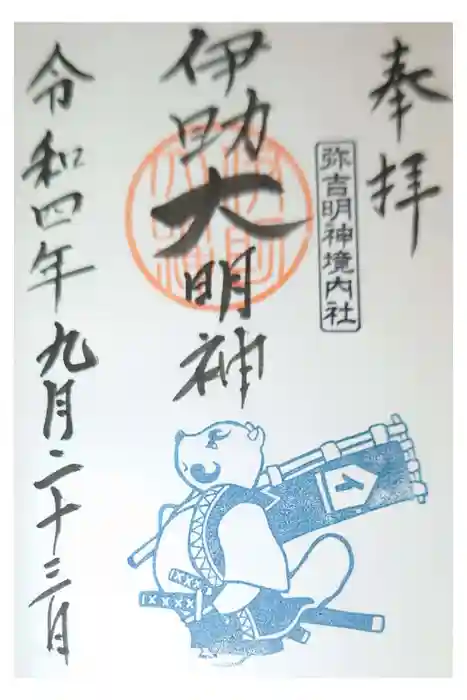 奉拝
弥吉明神境内社
伊助大明神
令和四年九月二十三日